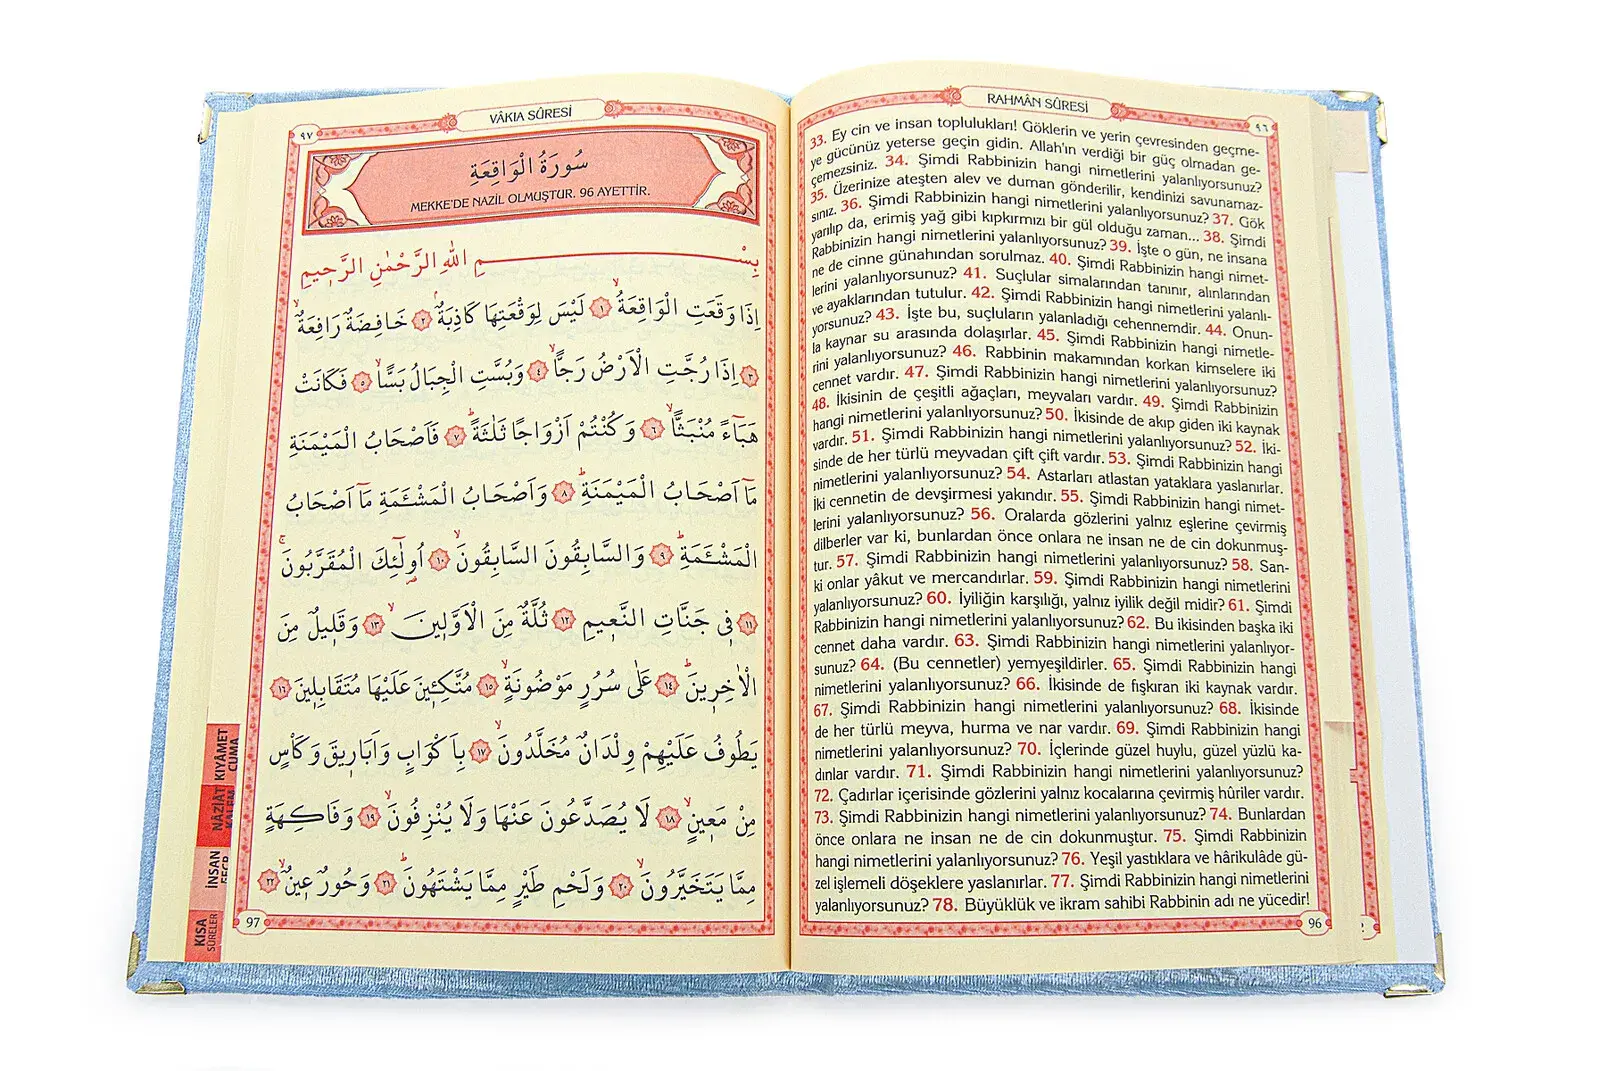 VÂKIA SÛRESİ
٩٧
سُورَةُ الْوَاقِعَةِ
MEKKE'DE NAZİL OLMUŞTUR. 96 AYETTİR.
بِسْمِ اللهِ الرَّحْمٰنِ الرَّحٖيمِ
اِذَا وَقَعَتِ الْوَاقِعَةُۙ ١ لَيْسَ لِوَقْعَتِهَا كَاذِبَةٌۘ ٢ خَافِضَةٌ رَافِعَةٌۙ
٣ اِذَا رُجَّتِ الْاَرْضُ رَجًّاۙ ٤ وَبُسَّتِ الْجِبَالُ بَسًّاۙ ٥ فَكَانَتْ
هَبَٓاءً مُنْبَثًّاۙ ٦ وَكُنْتُمْ اَزْوَاجًا ثَلٰثَةًۜ ٧ فَاَصْحَابُ الْمَيْمَنَةِ
مَٓا اَصْحَابُ الْمَيْمَنَةِۜ ٨ وَاَصْحَابُ الْمَشْـَٔمَةِ مَٓا اَصْحَابُ
الْمَشْـَٔمَةِۜ ٩ وَالسَّابِقُونَ السَّابِقُونَۙ ١٠ اُو۬لٰٓئِكَ الْمُقَرَّبُونَۚ
١١ فٖي جَنَّاتِ النَّعٖيمِ ١٢ ثُلَّةٌ مِنَ الْاَوَّلٖينَۙ ١٣ وَقَلٖيلٌ مِنَ
الْاٰخِرٖينَۜ ١٤ عَلٰى سُرُرٍ مَوْضُونَةٍۙ ١٥ مُتَّكِـٖٔينَ عَلَيْهَا مُتَقَابِلٖينَ ١٦
يَطُوفُ عَلَيْهِمْ وِلْدَانٌ مُخَلَّدُونَۙ ١٧ بِاَكْوَابٍ وَاَبَارٖيقَ وَكَأْسٍ
مِنْ مَعٖينٍۙ ١٨ لَا يُصَدَّعُونَ عَنْهَا وَلَا يُنْزِفُونَۙ ١٩ وَفَاكِهَةٍ
مِمَّا يَتَخَيَّرُونَۙ ٢٠ وَلَحْمِ طَيْرٍ مِمَّا يَشْتَهُونَۜ ٢١ وَحُورٌ عٖينٌۙ ٢٢
97
KIYÂMET
CUMA
NÂZİÂT
İNSAN
KISA
SÛRELER
RAHMÂN SÛRESİ
٩٦
33. Ey cin ve insan toplulukları! Göklerin ve yerin çevresinden geçme-
ye gücünüz yeterse geçin gidin. Allah'ın verdiği bir güç olmadan ge-
çemezsiniz. 34. Şimdi Rabbinizin hangi nimetlerini yalanlıyorsunuz?
35. Üzerinize ateşten alev ve duman gönderilir, kendinizi savunamaz-
sınız. 36. Şimdi Rabbinizin hangi nimetlerini yalanlıyorsunuz? 37. Gök
yarılıp da, erimiş yağ gibi kıpkırmızı bir gül olduğu zaman... 38. Şimdi
Rabbinizin hangi nimetlerini yalanlıyorsunuz? 39. İşte o gün, ne insana
ne de cinne günahından sorulmaz. 40. Şimdi Rabbinizin hangi nimet-
lerini yalanlıyorsunuz? 41. Suçlular simalarından tanınır, alınlarından
ve ayaklarından tutulur. 42. Şimdi Rabbinizin hangi nimetlerini yalanlı-
yorsunuz? 43. İşte bu, suçluların yalanladığı cehennemdir. 44. Onun-
la kaynar su arasında dolaşırlar. 45. Şimdi Rabbinizin hangi nimetle-
rini yalanlıyorsunuz? 46. Rabbinin makamından korkan kimselere iki
cennet vardır. 47. Şimdi Rabbinizin hangi nimetlerini yalanlıyorsunuz?
48. İkisinin de çeşitli ağaçları, meyvaları vardır. 49. Şimdi Rabbinizin
hangi nimetlerini yalanlıyorsunuz? 50. İkisinde de akıp giden iki kaynak
vardır. 51. Şimdi Rabbinizin hangi nimetlerini yalanlıyorsunuz? 52. İki-
sinde de her türlü meyvadan çift çift vardır. 53. Şimdi Rabbinizin hangi
nimetlerini yalanlıyorsunuz? 54. Astarları atlastan yataklara yaslanırlar.
İki cennetin de devşirmesi yakındır. 55. Şimdi Rabbinizin hangi nimet-
lerini yalanlıyorsunuz? 56. Oralarda gözlerini yalnız eşlerine çevirmiş
dilberler var ki, bunlardan önce onlara ne insan ne de cin dokunmuş-
tur. 57. Şimdi Rabbinizin hangi nimetlerini yalanlıyorsunuz? 58. San-
ki onlar yâkut ve mercandırlar. 59. Şimdi Rabbinizin hangi nimetlerini
yalanlıyorsunuz? 60. İyiliğin karşılığı, yalnız iyilik değil midir? 61. Şimdi
Rabbinizin hangi nimetlerini yalanlıyorsunuz? 62. Bu ikisinden başka iki
cennet daha vardır. 63. Şimdi Rabbinizin hangi nimetlerini yalanlıyor-
sunuz? 64. (Bu cennetler) yemyeşildirler. 65. Şimdi Rabbinizin hangi
nimetlerini yalanlıyorsunuz? 66. İkisinde de fışkıran iki kaynak vardır.
67. Şimdi Rabbinizin hangi nimetlerini yalanlıyorsunuz? 68. İkisinde
de her türlü meyva, hurma ve nar vardır. 69. Şimdi Rabbinizin hangi
nimetlerini yalanlıyorsunuz? 70. İçlerinde güzel huylu, güzel yüzlü ka-
dınlar vardır. 71. Şimdi Rabbinizin hangi nimetlerini yalanlıyorsunuz?
72. Çadırlar içerisinde gözlerini yalnız kocalarına çevirmiş hûriler vardır.
73. Şimdi Rabbinizin hangi nimetlerini yalanlıyorsunuz? 74. Bunlardan
önce onlara ne insan ne de cin dokunmuştur. 75. Şimdi Rabbinizin
hangi nimetlerini yalanlıyorsunuz? 76. Yeşil yastıklara ve hârikulâde gü-
zel işlemeli döşeklere yaslanırlar. 77. Şimdi Rabbinizin hangi nimetlerini
yalanlıyorsunuz? 78. Büyüklük ve ikram sahibi Rabbinin adı ne yücedir!
96